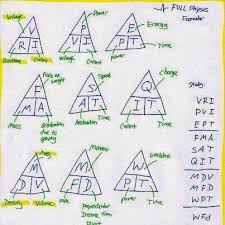 FULL Physics
Formulas
Voltage
Power
Energy
V
R I
P
V I
E
P T
Resistance
Current
Voltage
Current
power
Time
Force or weight
Speed
charge
F
M A
S
A T
Q
I T
Mass
acceleration
due to
gravity
Acceleration
Time
Current
Time
Study:
VRI
PVI
EPT
FMA
SAT
QIT
MDV
MFD
WPT
WFd
Mass
M
D V
M
F D
W
P T
Density
Volume
Force
perpendicular
Distance from
Pivot
power
Time